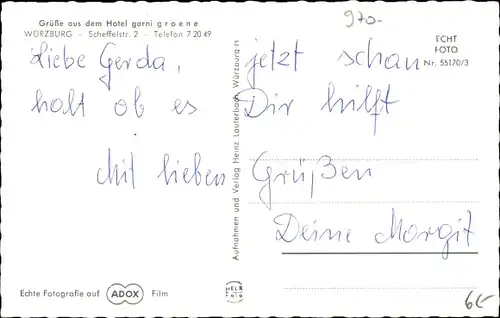 Grüße aus dem Hotel garni groene
WÜRZBURG – Scheffelstr. 2 – Telefon 7 20 49
970-
ECHT
FOTO
Nr. 55170/3
Liebe Gerda, jetzt schau
halt ob es Dir hilft
Mit lieben Grüßen
Deine Margit
Aufnahmen und Verlag Heinz Lauterbach, Würzburg-H
Echte Fotografie auf ADOX Film
6,-